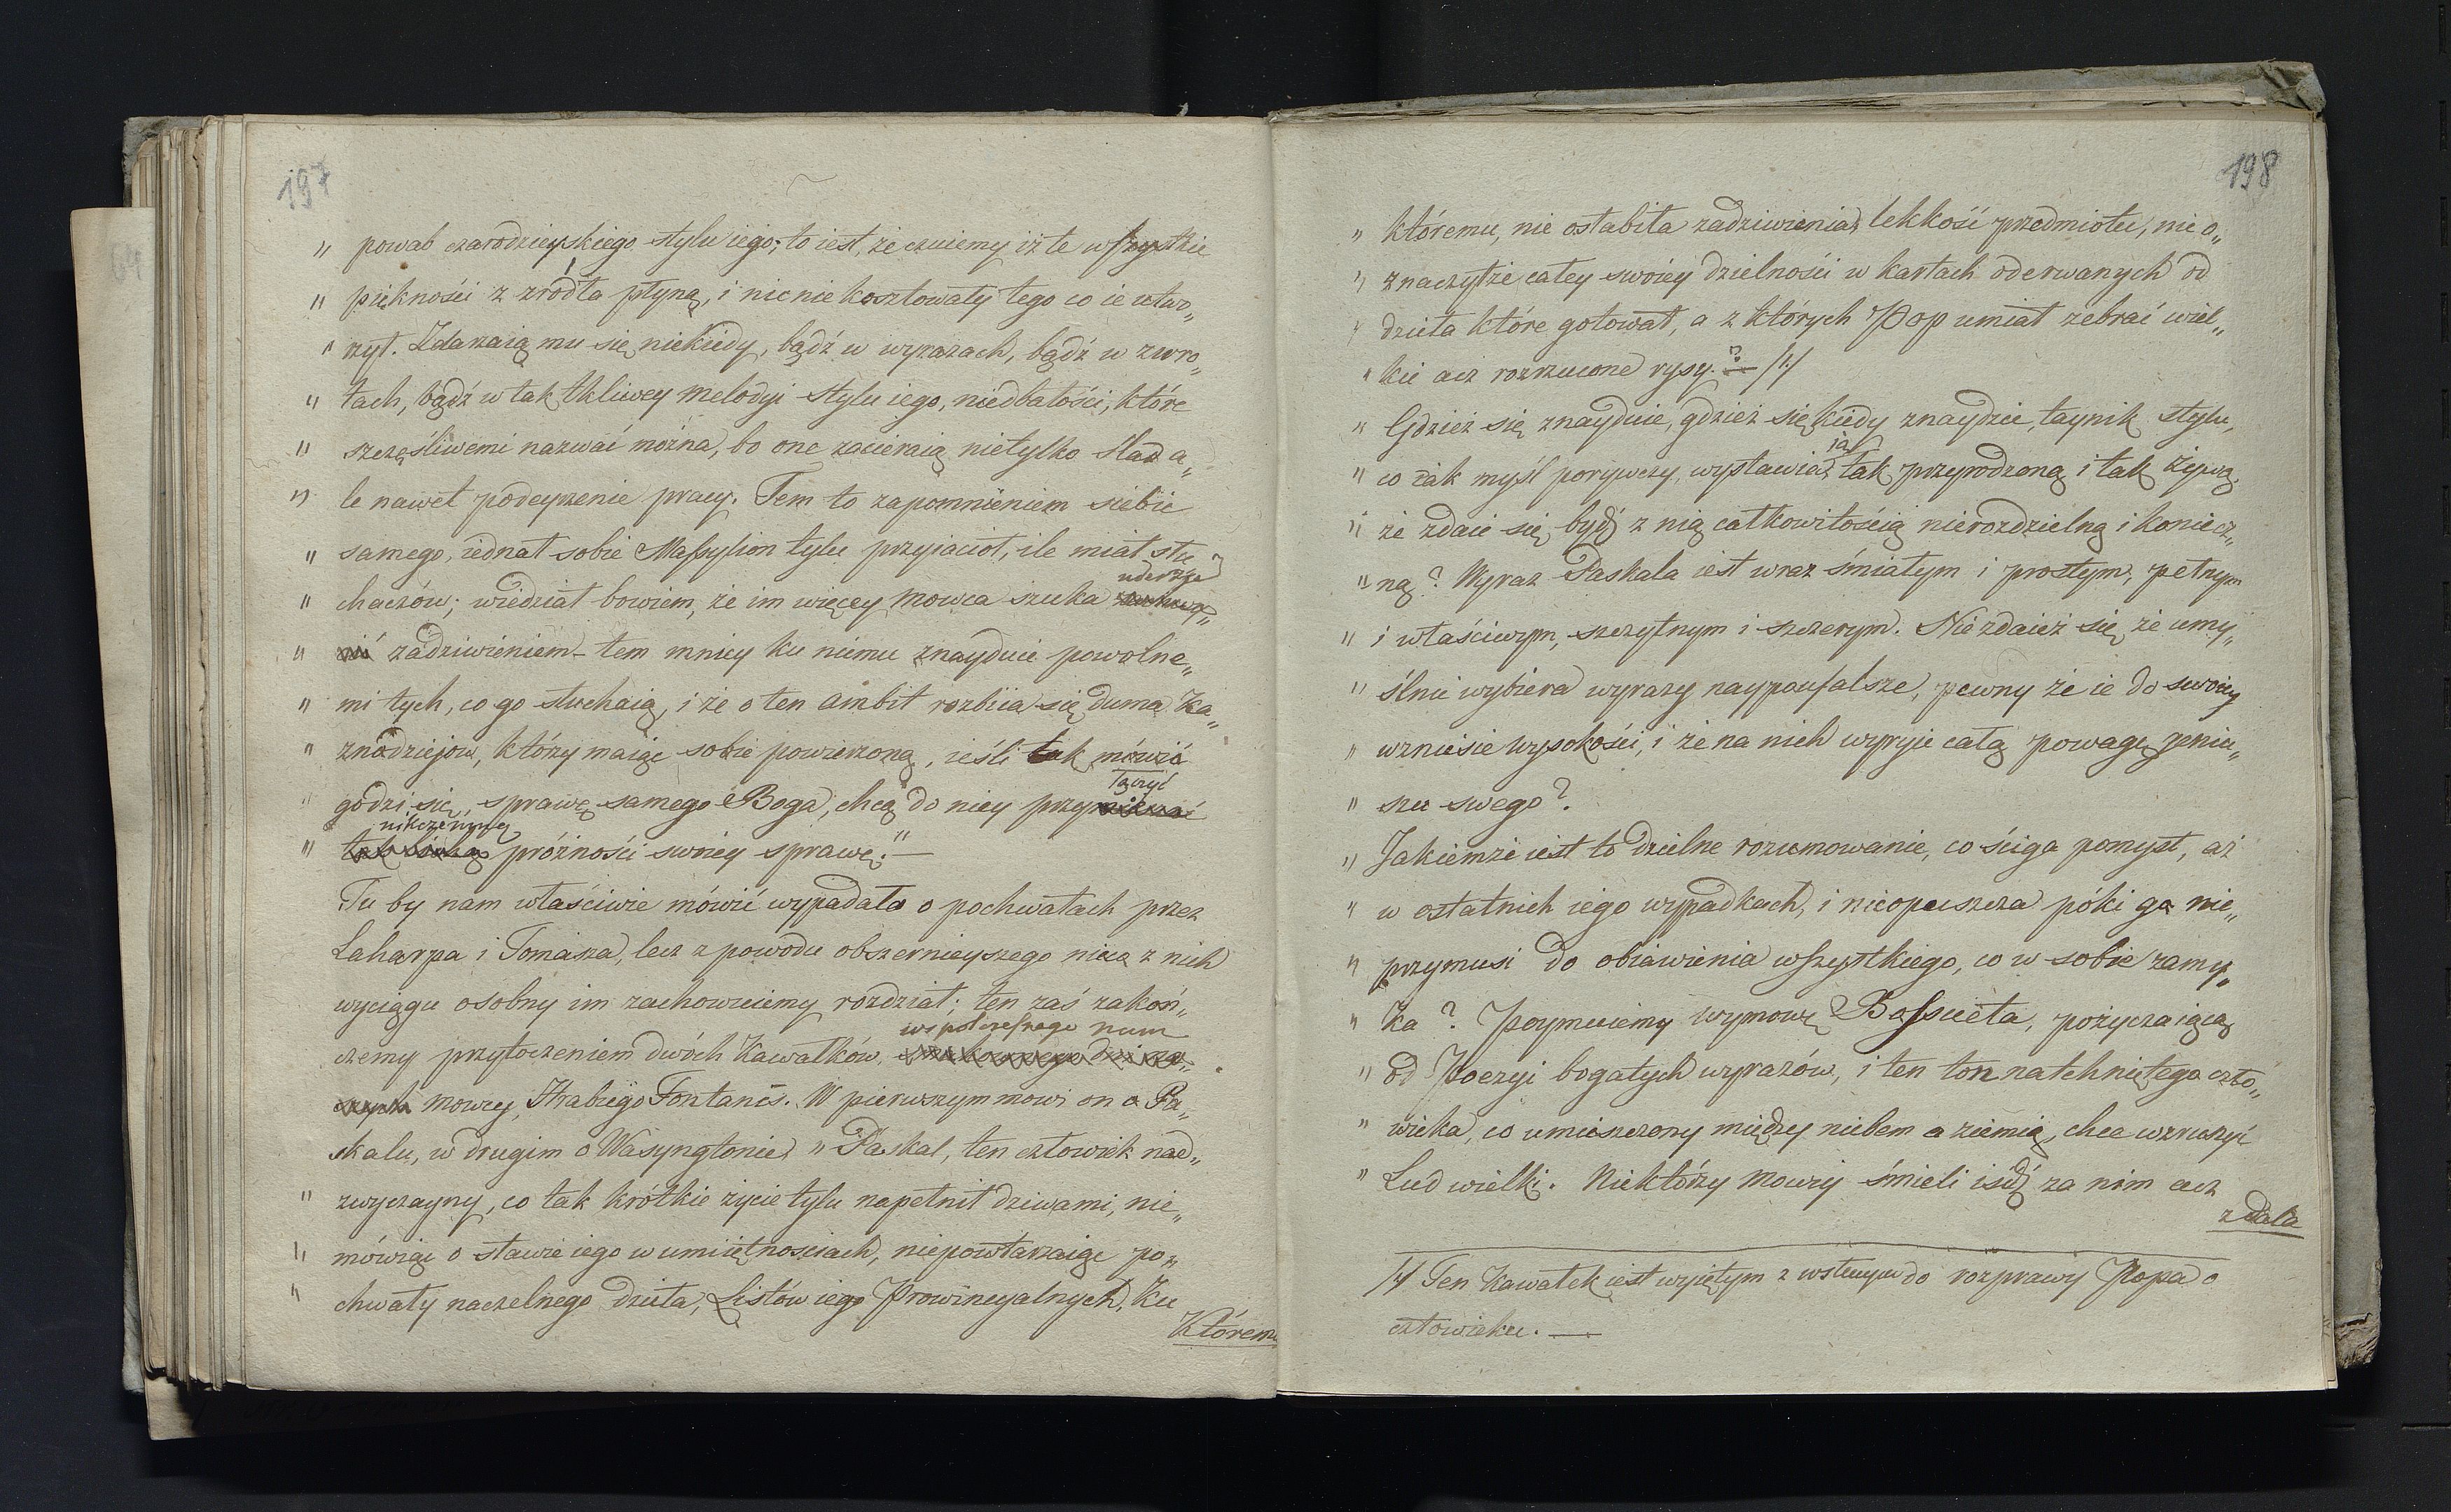 197
„ powab czarodzieyskiego stylu iego; to iest, że czuiemy iż te wszystkie
„ piękności z źródła płyną, i nic nie kosztowały tego co ie utwo„
„ rzył. Zdarzaią mu się niekiedy, bądź w wyrazach, bądź w zwro„
„ tach, bądź w tak tkliwey melodyi stylu iego, niedbałości, które
„ szczęśliwemi nazwać można, bo one zacieraią nietylko ślad a„
„ le nawet podeyrzenie pracy. Tem to zapomnieniem siebie
„ samego, iednał sobie Massylion tylu przyiaciół, ile miał słu
uderzyć
„ chaczów; wiedział bowiem, że im więcey mowca szuka
„ zadziwieniem - tem mniey ku niemu znayduie powolne„
„ mi tych, co go słuchaią, i że o ten ambit rozbiia się duma Ka„
„ znodziejow, którzy maiąc sobie powierzoną, ieśli tak mówić
łączyć
„ godzi się, sprawę samego Boga, chcą do niey przy
nikczemną
„ próżności swoiey sprawę." —
Tu by nam właściwie mówić wypadało o pochwałach przez
Laharpa i Tomasza, lecz z powodu obszernieyszego nieco z nich
wyciągu osobny im zachowuiemy rozdział; ten zaś zakoń„
wspołczesnego nam
czemy przytoczeniem dwóch kawałków
mowcy, Hrabiego Fontanes. W pierwszym mowi on o Pa„
skalu, w drugim o Wasyngtonie. „ Paskal, ten człowiek nad„
„ zwyczayny, co tak krótkie życie tylu napełnił dziwami, nie„
„ mówiąc o sławie iego w umiiętnosciach, niepowtarzaiąc po„
„ chwały naczelnego dzieła, Listów iego Prowincyalnych, ku
Którem
198
„ któremu, nie osłabiła zadziwienia lekkość przedmiotu, nie o„
„ znaczyłże całey swoiey dzielności w kartach oderwanych od
„ dzieła które gotował, a z których Pop umiał zebrać wiel„
„ kie acz rozrzucone rysy.? — /1/
„ Gdzież się znayduie, gdzież się kiedy znaydzie, taynik stylu,
ią
„ co iak myśl porywczy, wystawia tak przyrodzoną i tak żywą,
„ że zdaie się bydź z nią całkowitością nierozdzielną i koniecz„
„ ną? Wyraz Paskala iest wraz śmiałym i prostym, pełnym
„ i właściwym, szczytnym i szczerym. Nie zdaież się że umy„
„ ślnie wybiera wyrazy naypoufalsze, pewny że ie do swoiey
„ wzniesie wysokości, i że na nich wyryie całą powagę geniu„
„ szu swego?
„ Jakiemże iest to dzielne rozumowanie, co ściga pomysł, aż
„ w ostatnich iego wypadkach, i nieopuszcza póki go nie„
„ przymusi do obiawienia wszystkiego, co w sobie zamy„
„ ka? Poymuiemy wymowę Bossueta, pożyczaiącą
„ od Poezyi bogatych wyrazów, i ten ton natchniętego czło„
„ wieka, co umieszczony między niebem a ziemią, chce wzruszyć
„ Lud wielki. Niektórzy mowcy śmieli iśdź za nim acz
z dala
/1/ Ten kawałek iest wyiętym z wstępu do rozprawy Popa o
człowieku. —